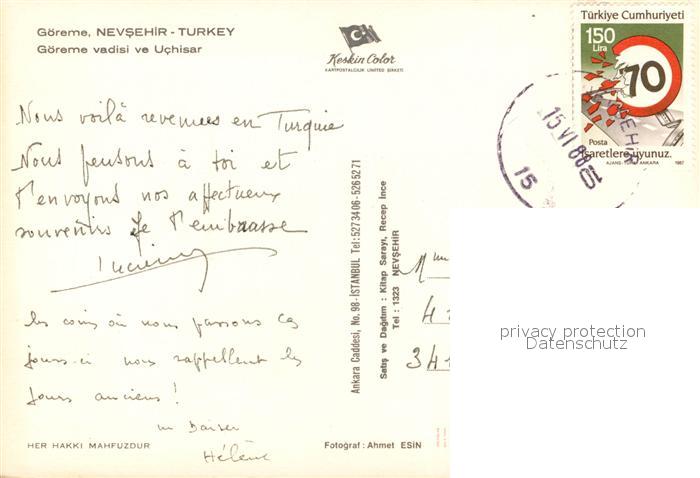 Göreme, NEVŞEHİR - TURKEY
Göreme vadisi ve Uçhisar
Keskin Color
KARTPOSTALCILIK LİMİTED ŞİRKETİ
Türkiye Cumhuriyeti
150
Lira
70
Posta
işaretlere uyunuz.
AJANS-TÜRK/ANKARA 1987
15 VI 88
15
Nous voilà revenues en Turquie
Nous pensons à toi et
t'envoyons nos affectueux
souvenirs Je t'embrasse
les coins où nous passons ces
jours-ci nous rappellent les
jours anciens !
un Baiser
Hélène
Ankara Caddesi, No. 98 - İSTANBUL Tel: 5273406-5265271
Satış ve Dağıtım : Kitap Sarayı, Recep İnce
Tel : 1323 NEVŞEHİR
Mme
4
34
privacy protection
Datenschutz
HER HAKKI MAHFUZDUR
Fotoğraf : Ahmet ESİN